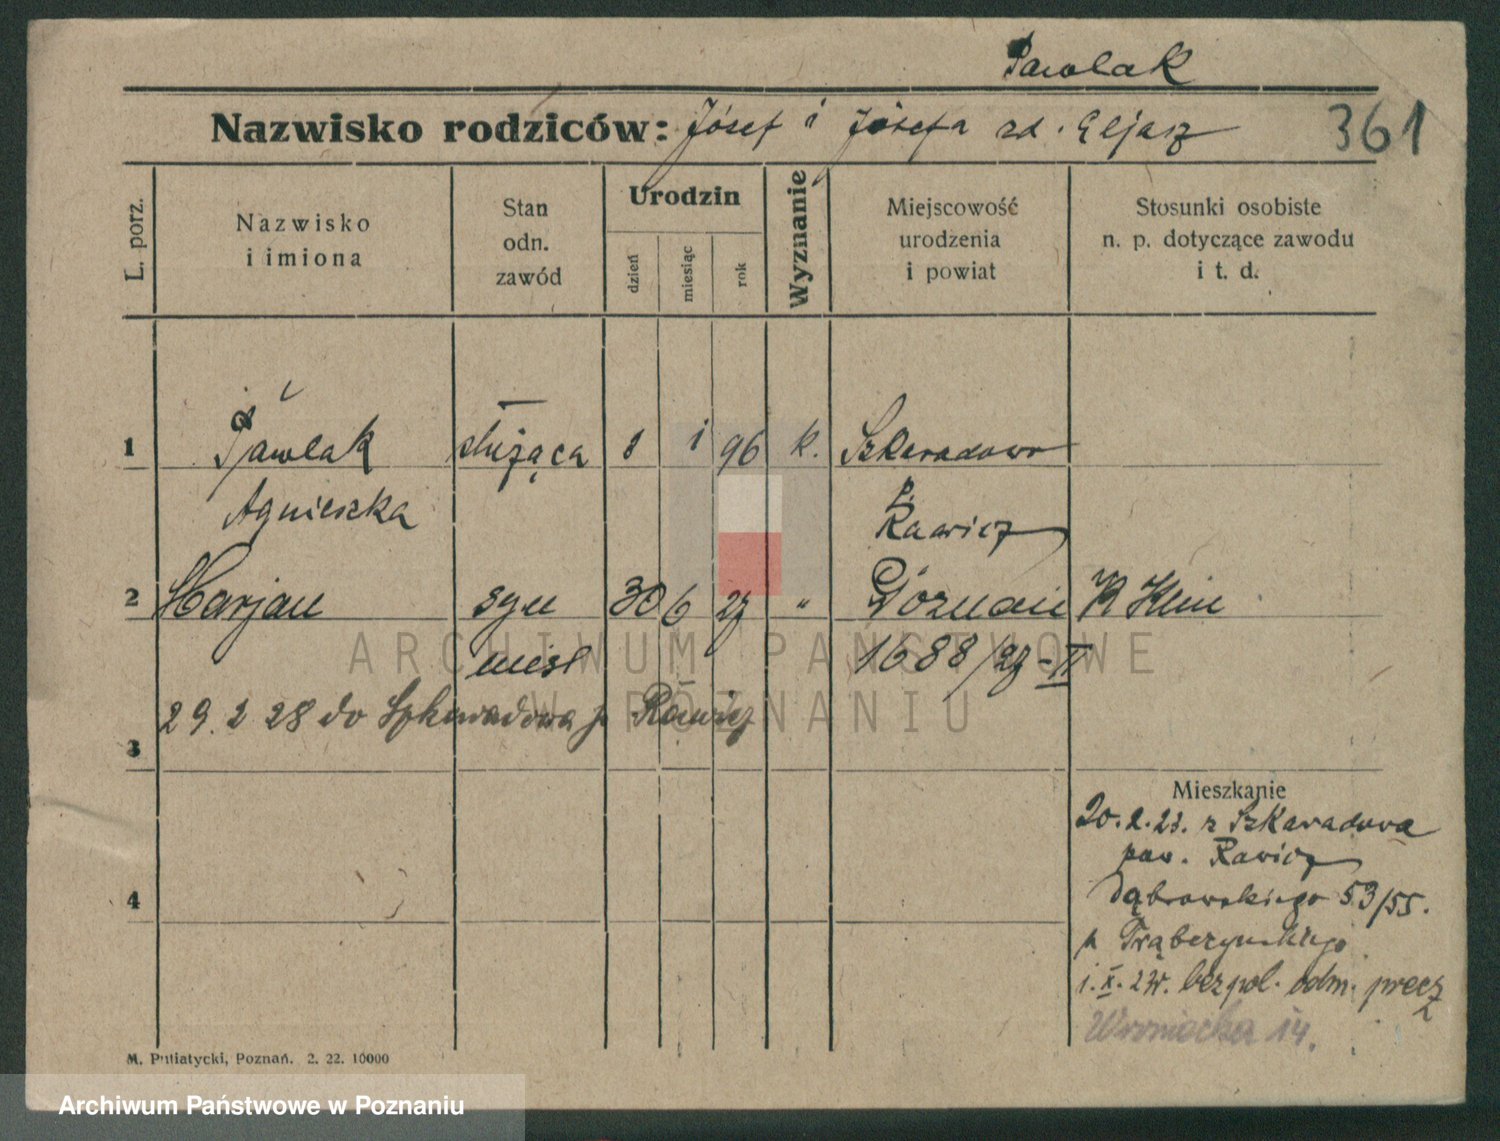 Pawlak
Nazwisko rodziców: Józef i Józefa zd. Eljasz 361
L. porz.
Nazwisko
i imiona
Stan
odn.
zawód
Urodzin
dzień
miesiąc
rok
Wyznanie
Miejscowość
urodzenia
i powiat
Stosunki osobiste
n. p. dotyczące zawodu
i t. d.
1 Pawlak służąca 1 i 96 k. Szkaradowo
Agnieszka p. Rawicz
2 Marjan syn 30 6 27 " Poznań K Klin
nieśl 1688/27-II
29. 2 28 do Szkaradowa p Rawicz
3
Mieszkanie
20.2.23. z Szkaradowa
pow. Rawicz
4 Dąbrowskiego 53/55.
p Trąbczyńskiego
i.X.27r. bez pol. odm. precz
Wroniecka 14.
M. Putiatycki, Poznań. 2. 22. 10000
ARCHIWUM PAŃSTWOWE
W POZNANIU
Archiwum Państwowe w Poznaniu